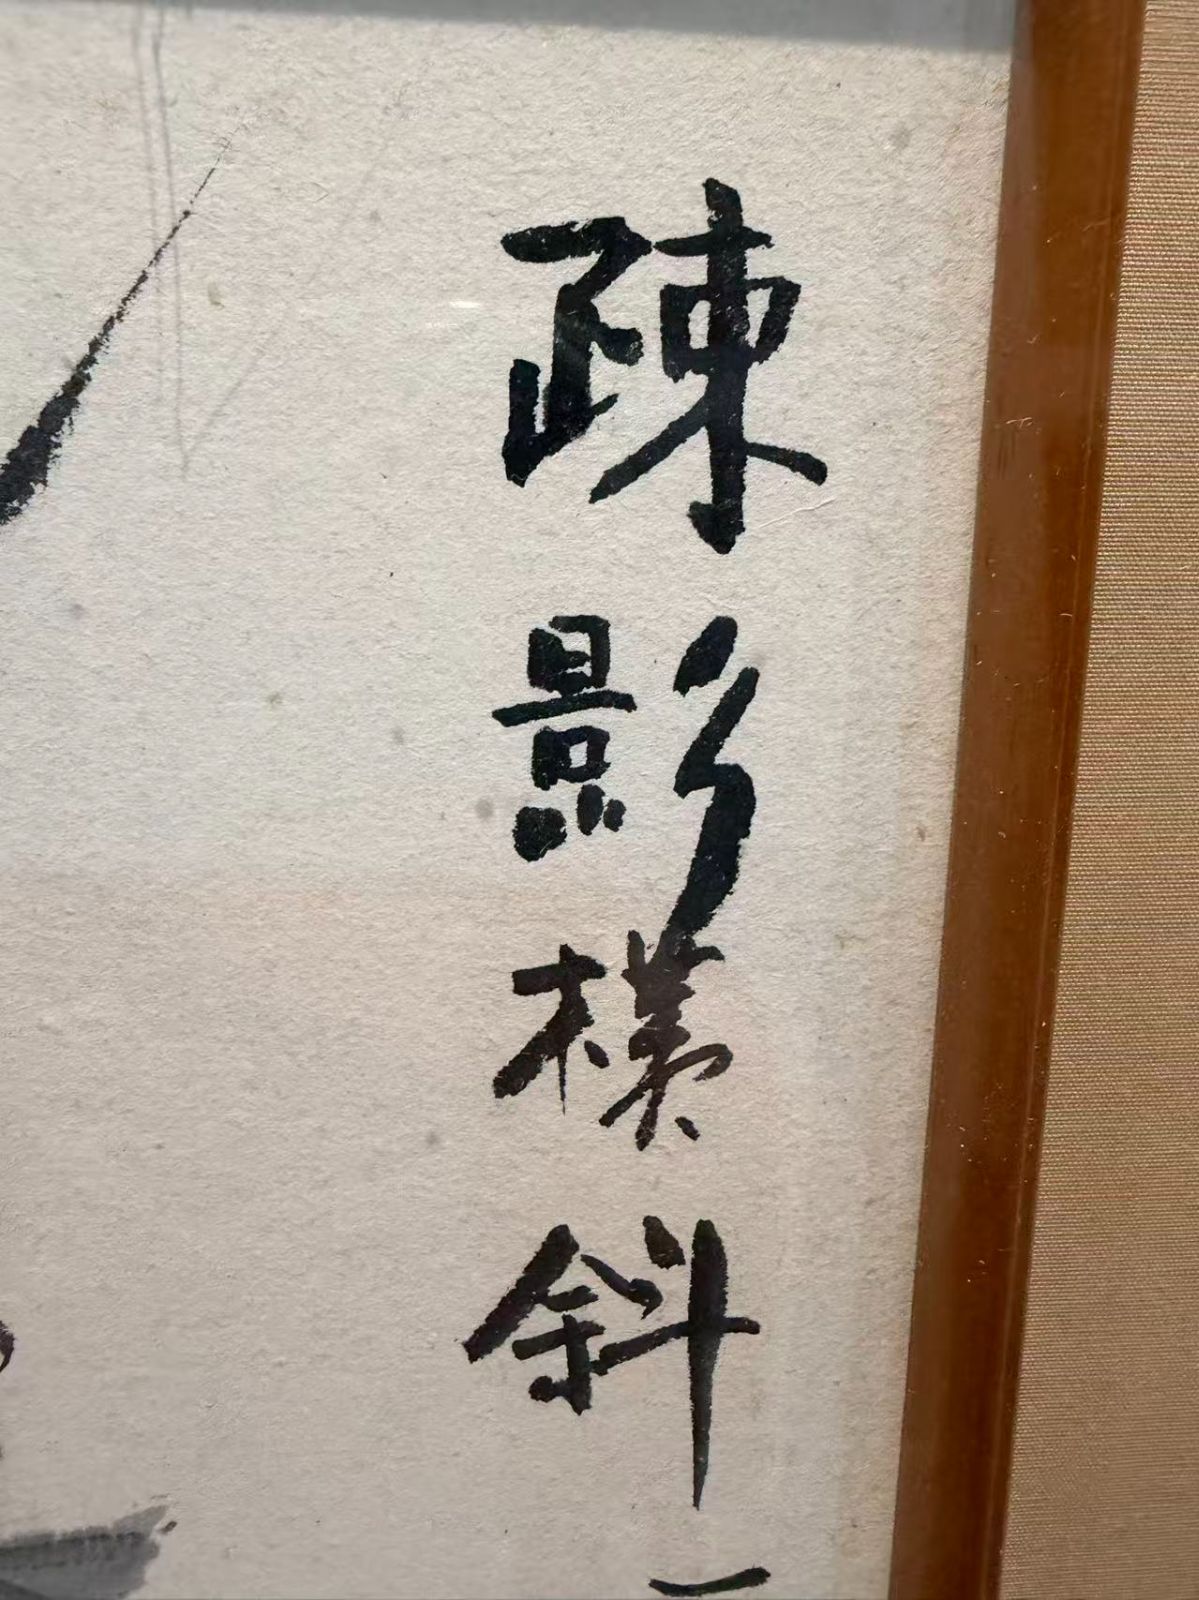 疎影横斜一